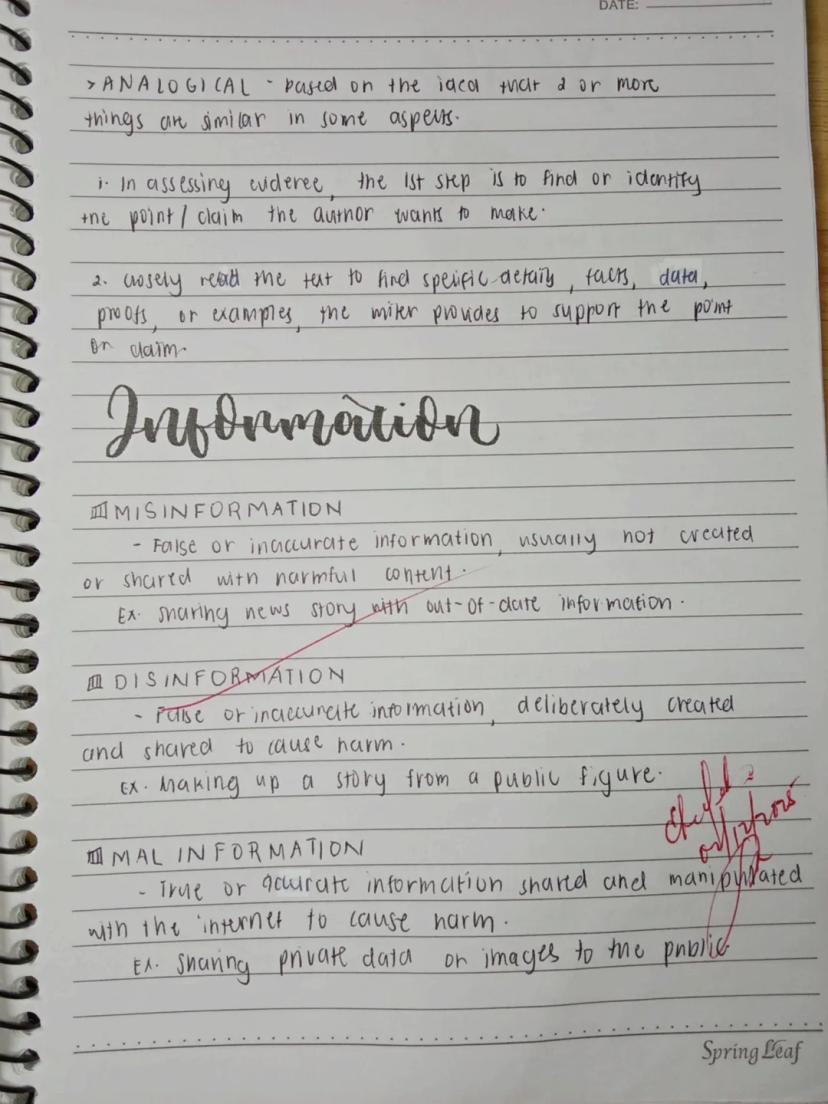 DATE:
> ANALOGICAL - based on the idea that 2 or more
things are similar in some aspects.
1. In assessing evidence, the 1st step is to find or identify
the point / claim the author wants to make.
2. closely read the text to find specific details, facts, data,
proofs, or examples, the writer provides to support the point
or claim.
Information
MISINFORMATION
- False or inaccurate information, usually not created
or shared with harmful content.
Ex. sharing news story with out-of-date information.
DISINFORMATION
- False or inaccurate information, deliberately created
and shared to cause harm.
Ex. Making up a story from a public figure.
MAL INFORMATION
- True or accurate information shared and manipulated
with the internet to cause harm.
Ex. Sharing private data or images to the public
SpringLeaf